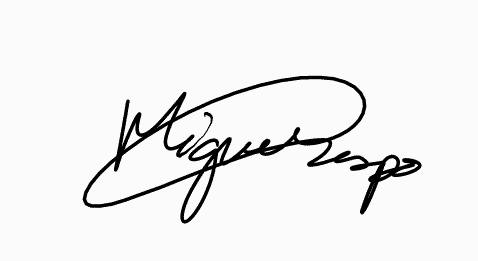 Miguel Crespo